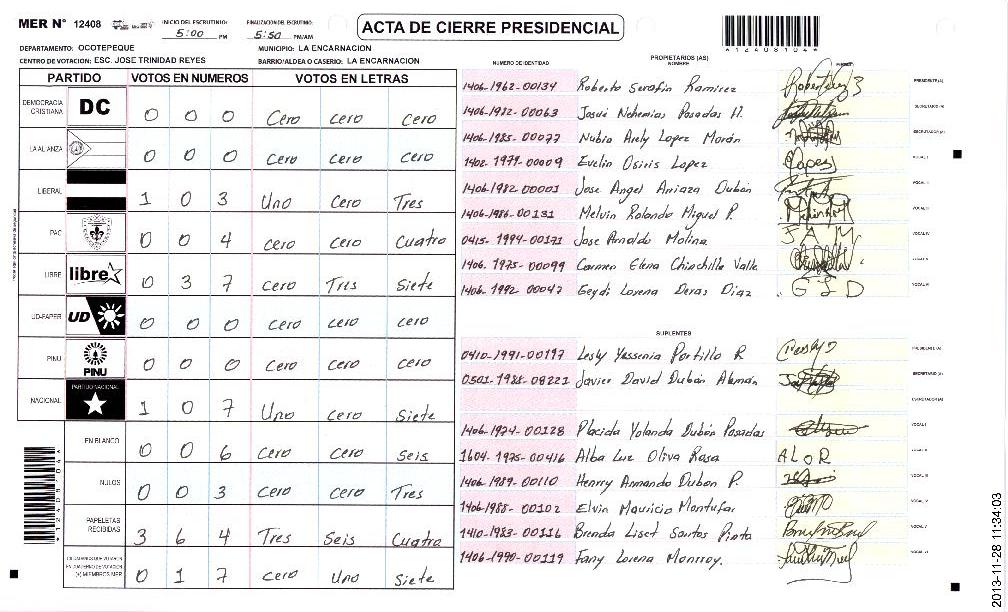 MER N° 12408
INICIO DEL ESCRUTINIO: 5:00 PM
FINALIZACIÓN DEL ESCRUTINIO: 5:50 PM/AM
ACTA DE CIERRE PRESIDENCIAL
*12408104*
DEPARTAMENTO: OCOTEPEQUE
MUNICIPIO: LA ENCARNACION
CENTRO DE VOTACION: ESC. JOSE TRINIDAD REYES
BARRIO/ALDEA O CASERIO: LA ENCARNACION
PARTIDO VOTOS EN NUMEROS VOTOS EN LETRAS
DEMOCRACIA CRISTIANA DC 0 0 0 Cero cero cero
LA ALIANZA 0 0 0 Cero cero cero
LIBERAL 1 0 3 Uno Cero Tres
PAC 0 0 4 cero cero Cuatro
LIBRE libre 0 3 7 cero Tres Siete
UD-FAPER UD 0 0 0 cero cero cero
PINU PINU 0 0 0 cero cero cero
NACIONAL PARTIDO NACIONAL 1 0 7 Uno cero Siete
EN BLANCO 0 0 6 Cero cero Seis
NULOS 0 0 3 cero cero Tres
PAPELETAS RECIBIDAS 3 6 4 Tres Seis Cuatro
CIUDADANOS QUE VOTARON EN CUADERNO DE VOTACION (+) MIEMBROS MER 0 1 7 cero Uno Siete
NUMERO DE IDENTIDAD
PROPIETARIOS (AS)
NOMBRE
1406-1962-00134 Roberto Serafin Ramirez PRESIDENTE(A)
1406-1982-00063 Josué Nehemias Posadas H. SECRETARIO(A)
1406-1985-00077 Nubia Arely Lopez Morán ESCRUTADOR(A)
1402-1979-00009 Evelin Osiris Lopez Lopez VOCAL I
1406-1982-00001 Jose Angel Arriaza Dubón VOCAL II
1406-1986-00131 Melvin Rolando Miguel P. VOCAL III
0415-1994-00171 Jose Arnaldo Molina J A M VOCAL IV
1406-1975-00099 Carmen Elena Chinchilla Valle VOCAL V
1406-1992-00047 Geydi Lorena Deras Diaz G L D VOCAL VI
SUPLENTES
0410-1991-00197 Lesly Yessenia Portillo R PRESIDENTE(A)
0501-1988-08221 Javier David Dubón Alemán SECRETARIO(A)
ESCRUTADOR(A)
1406-1974-00128 Placida Yolanda Dubón Posadas VOCAL I
1604-1975-00416 Alba Luz Oliva Rosa ALOR VOCAL II
1406-1989-00110 Henrry Armando Dubon P. VOCAL III
1406-1988-00102 Elvin Mauricio Montufar VOCAL IV
1410-1983-00116 Brenda Liset Santos Pinto VOCAL V
1406-1990-00119 Fany Lorena Monrroy. VOCAL VI
*12408104*
2013-11-28 11:34:03